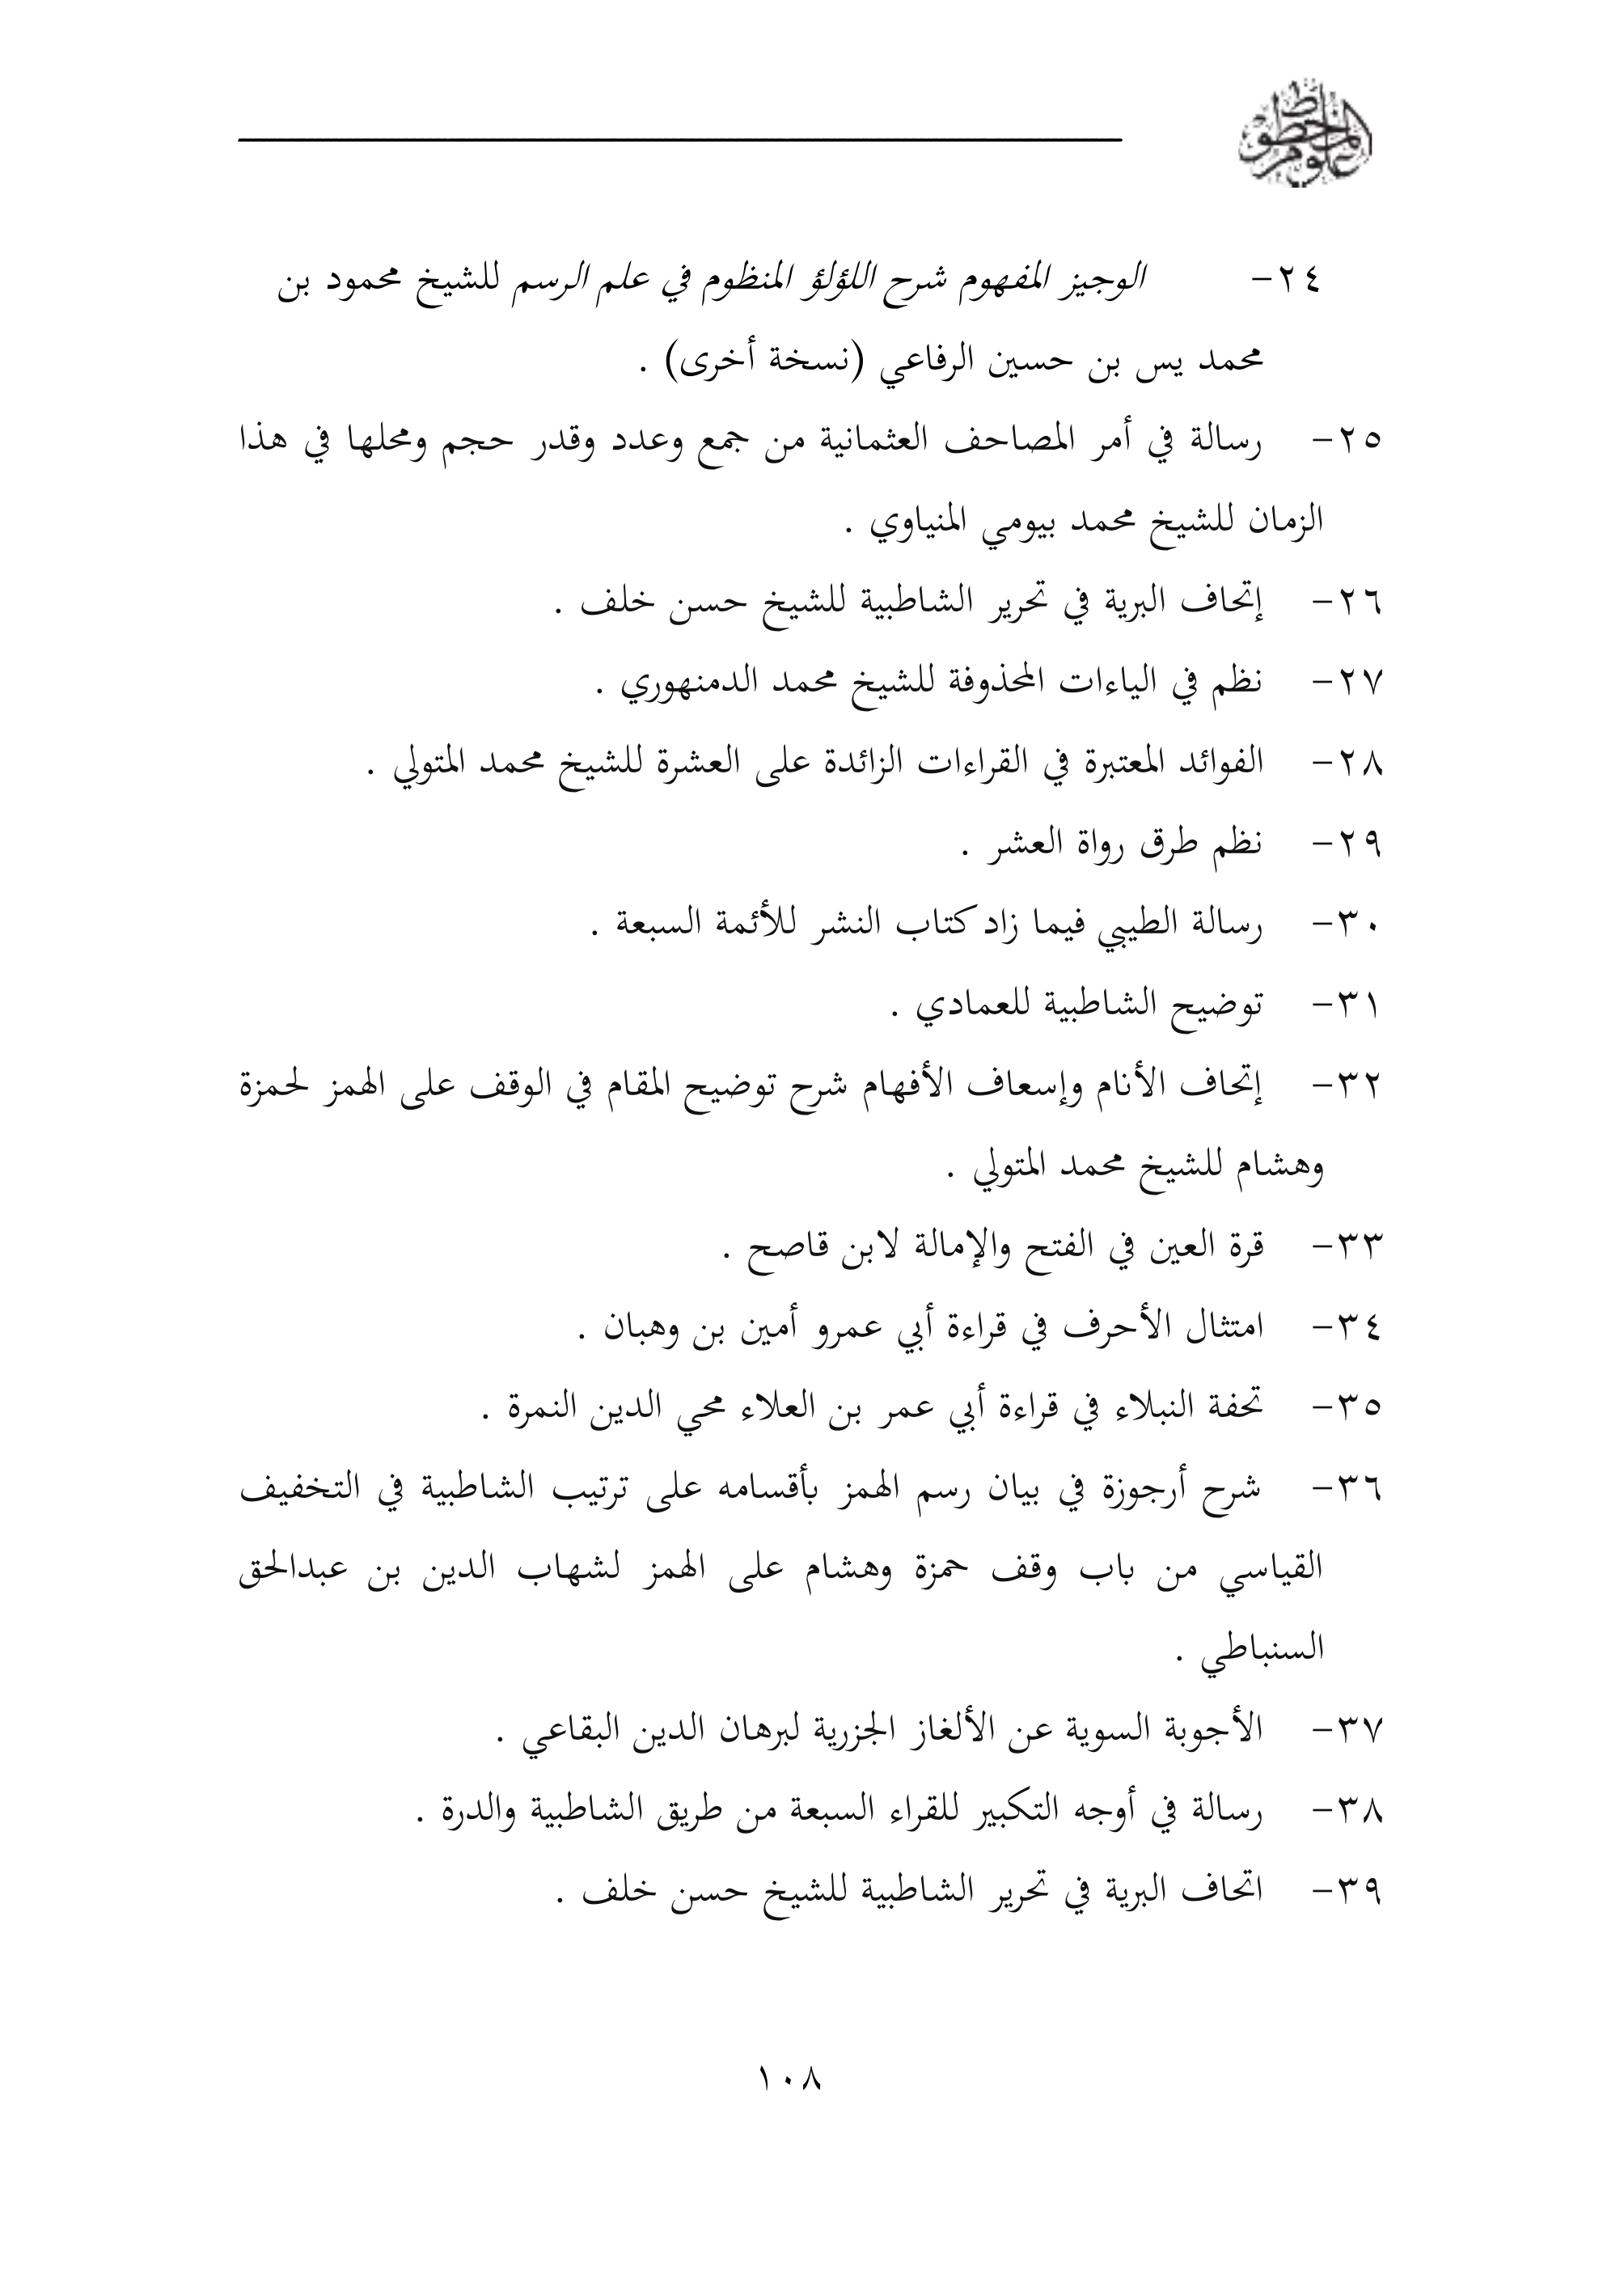 علوم المخطوط
٢٤- الوجيز المفهوم شرح اللؤلؤ المنظوم في علم الرسم للشيخ محمود بن
محمد يس بن حسين الرفاعي (نسخة أخرى) .
٢٥- رسالة في أمر المصاحف العثمانية من جمع وعدد وقدر حجم ومحلها في هذا
الزمان للشيخ محمد بيومي المنياوي .
٢٦- إتحاف البرية في تحرير الشاطبية للشيخ حسن خلف .
٢٧- نظم في الياءات المحذوفة للشيخ محمد الدمنهوري .
٢٨- الفوائد المعتبرة في القراءات الزائدة على العشرة للشيخ محمد المتولي .
٢٩- نظم طرق رواة العشر .
٣٠- رسالة الطيبي فيما زاد كتاب النشر للأئمة السبعة .
٣١- توضيح الشاطبية للعمادي .
٣٢- إتحاف الأنام وإسعاف الأفهام شرح توضيح المقام في الوقف على الهمز لحمزة
وهشام للشيخ محمد المتولي .
٣٣- قرة العين في الفتح والإمالة لابن قاصح .
٣٤- امتثال الأحرف في قراءة أبي عمرو أمين بن وهبان .
٣٥- تحفة النبلاء في قراءة أبي عمر بن العلاء محي الدين النمرة .
٣٦- شرح أرجوزة في بيان رسم الهمز بأقسامه على ترتيب الشاطبية في التخفيف
القياسي من باب وقف حمزة وهشام على الهمز لشهاب الدين بن عبدالحق
السنباطي .
٣٧- الأجوبة السوية عن الألغاز الجزرية لبرهان الدين البقاعي .
٣٨- رسالة في أوجه التكبير للقراء السبعة من طريق الشاطبية والدرة .
٣٩- اتحاف البرية في تحرير الشاطبية للشيخ حسن خلف .
١٠٨